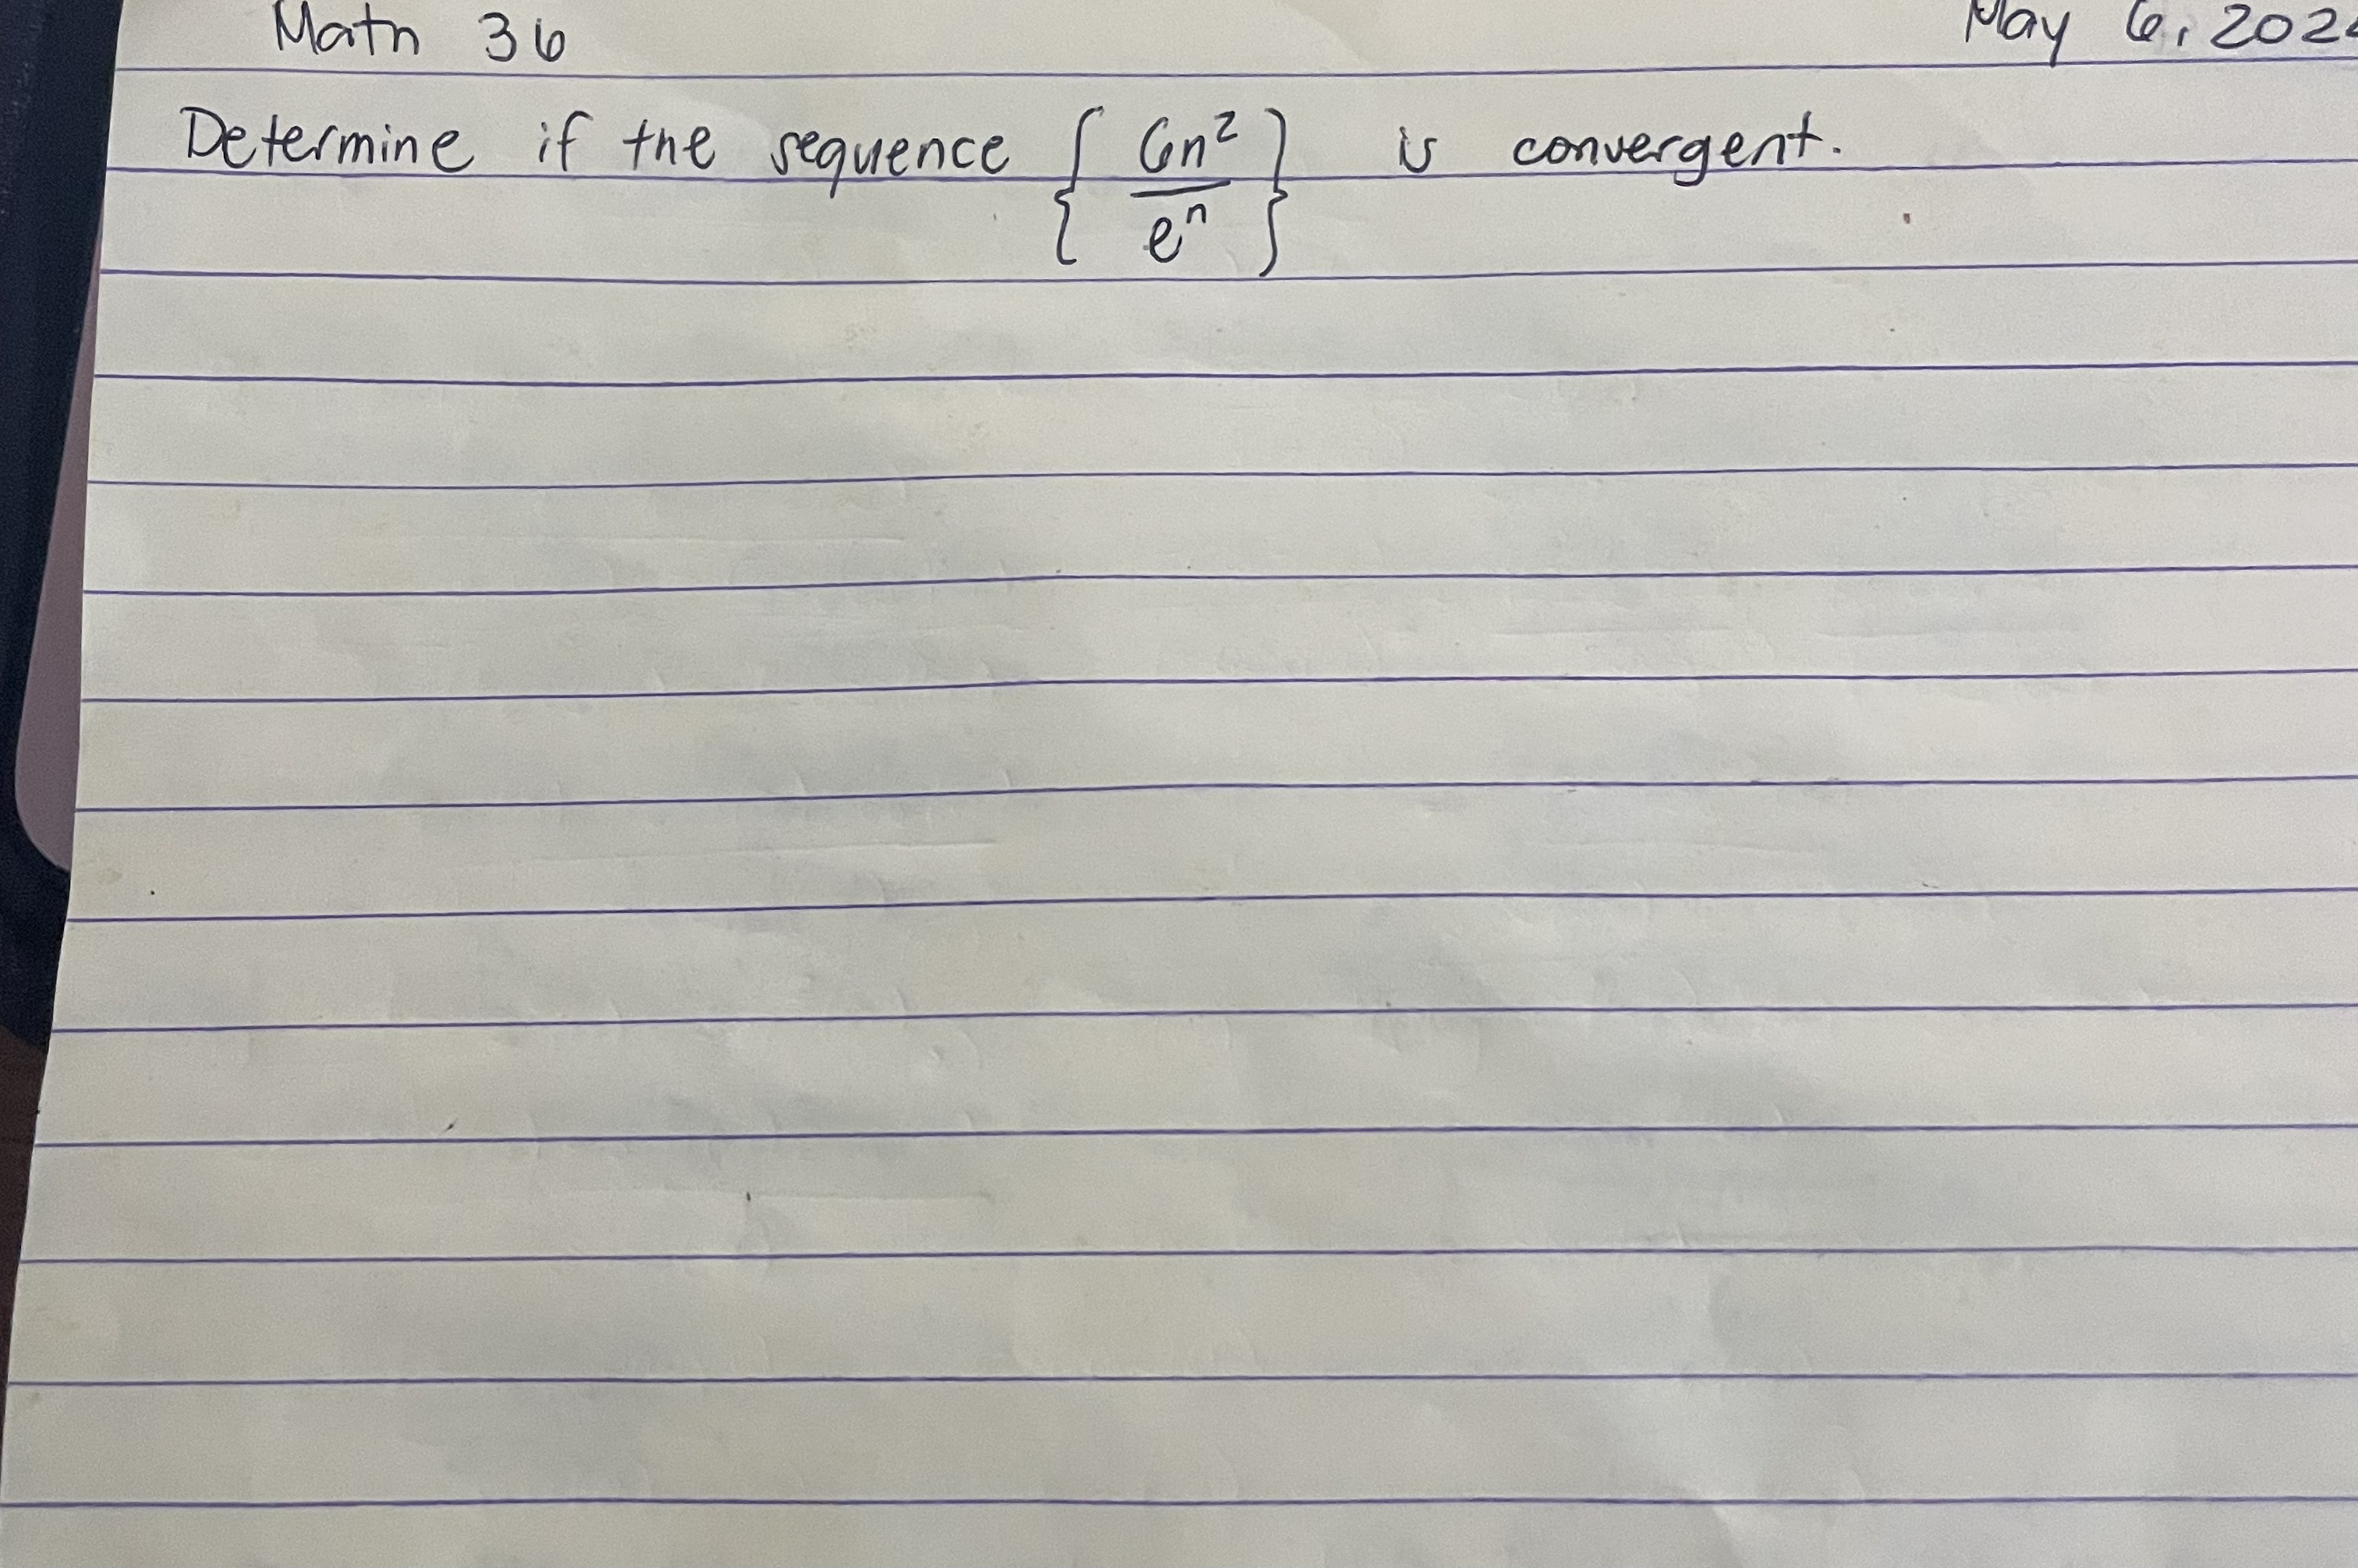 Math 36 May 6, 202
Determine if the sequence { 6n² / eⁿ } is convergent.